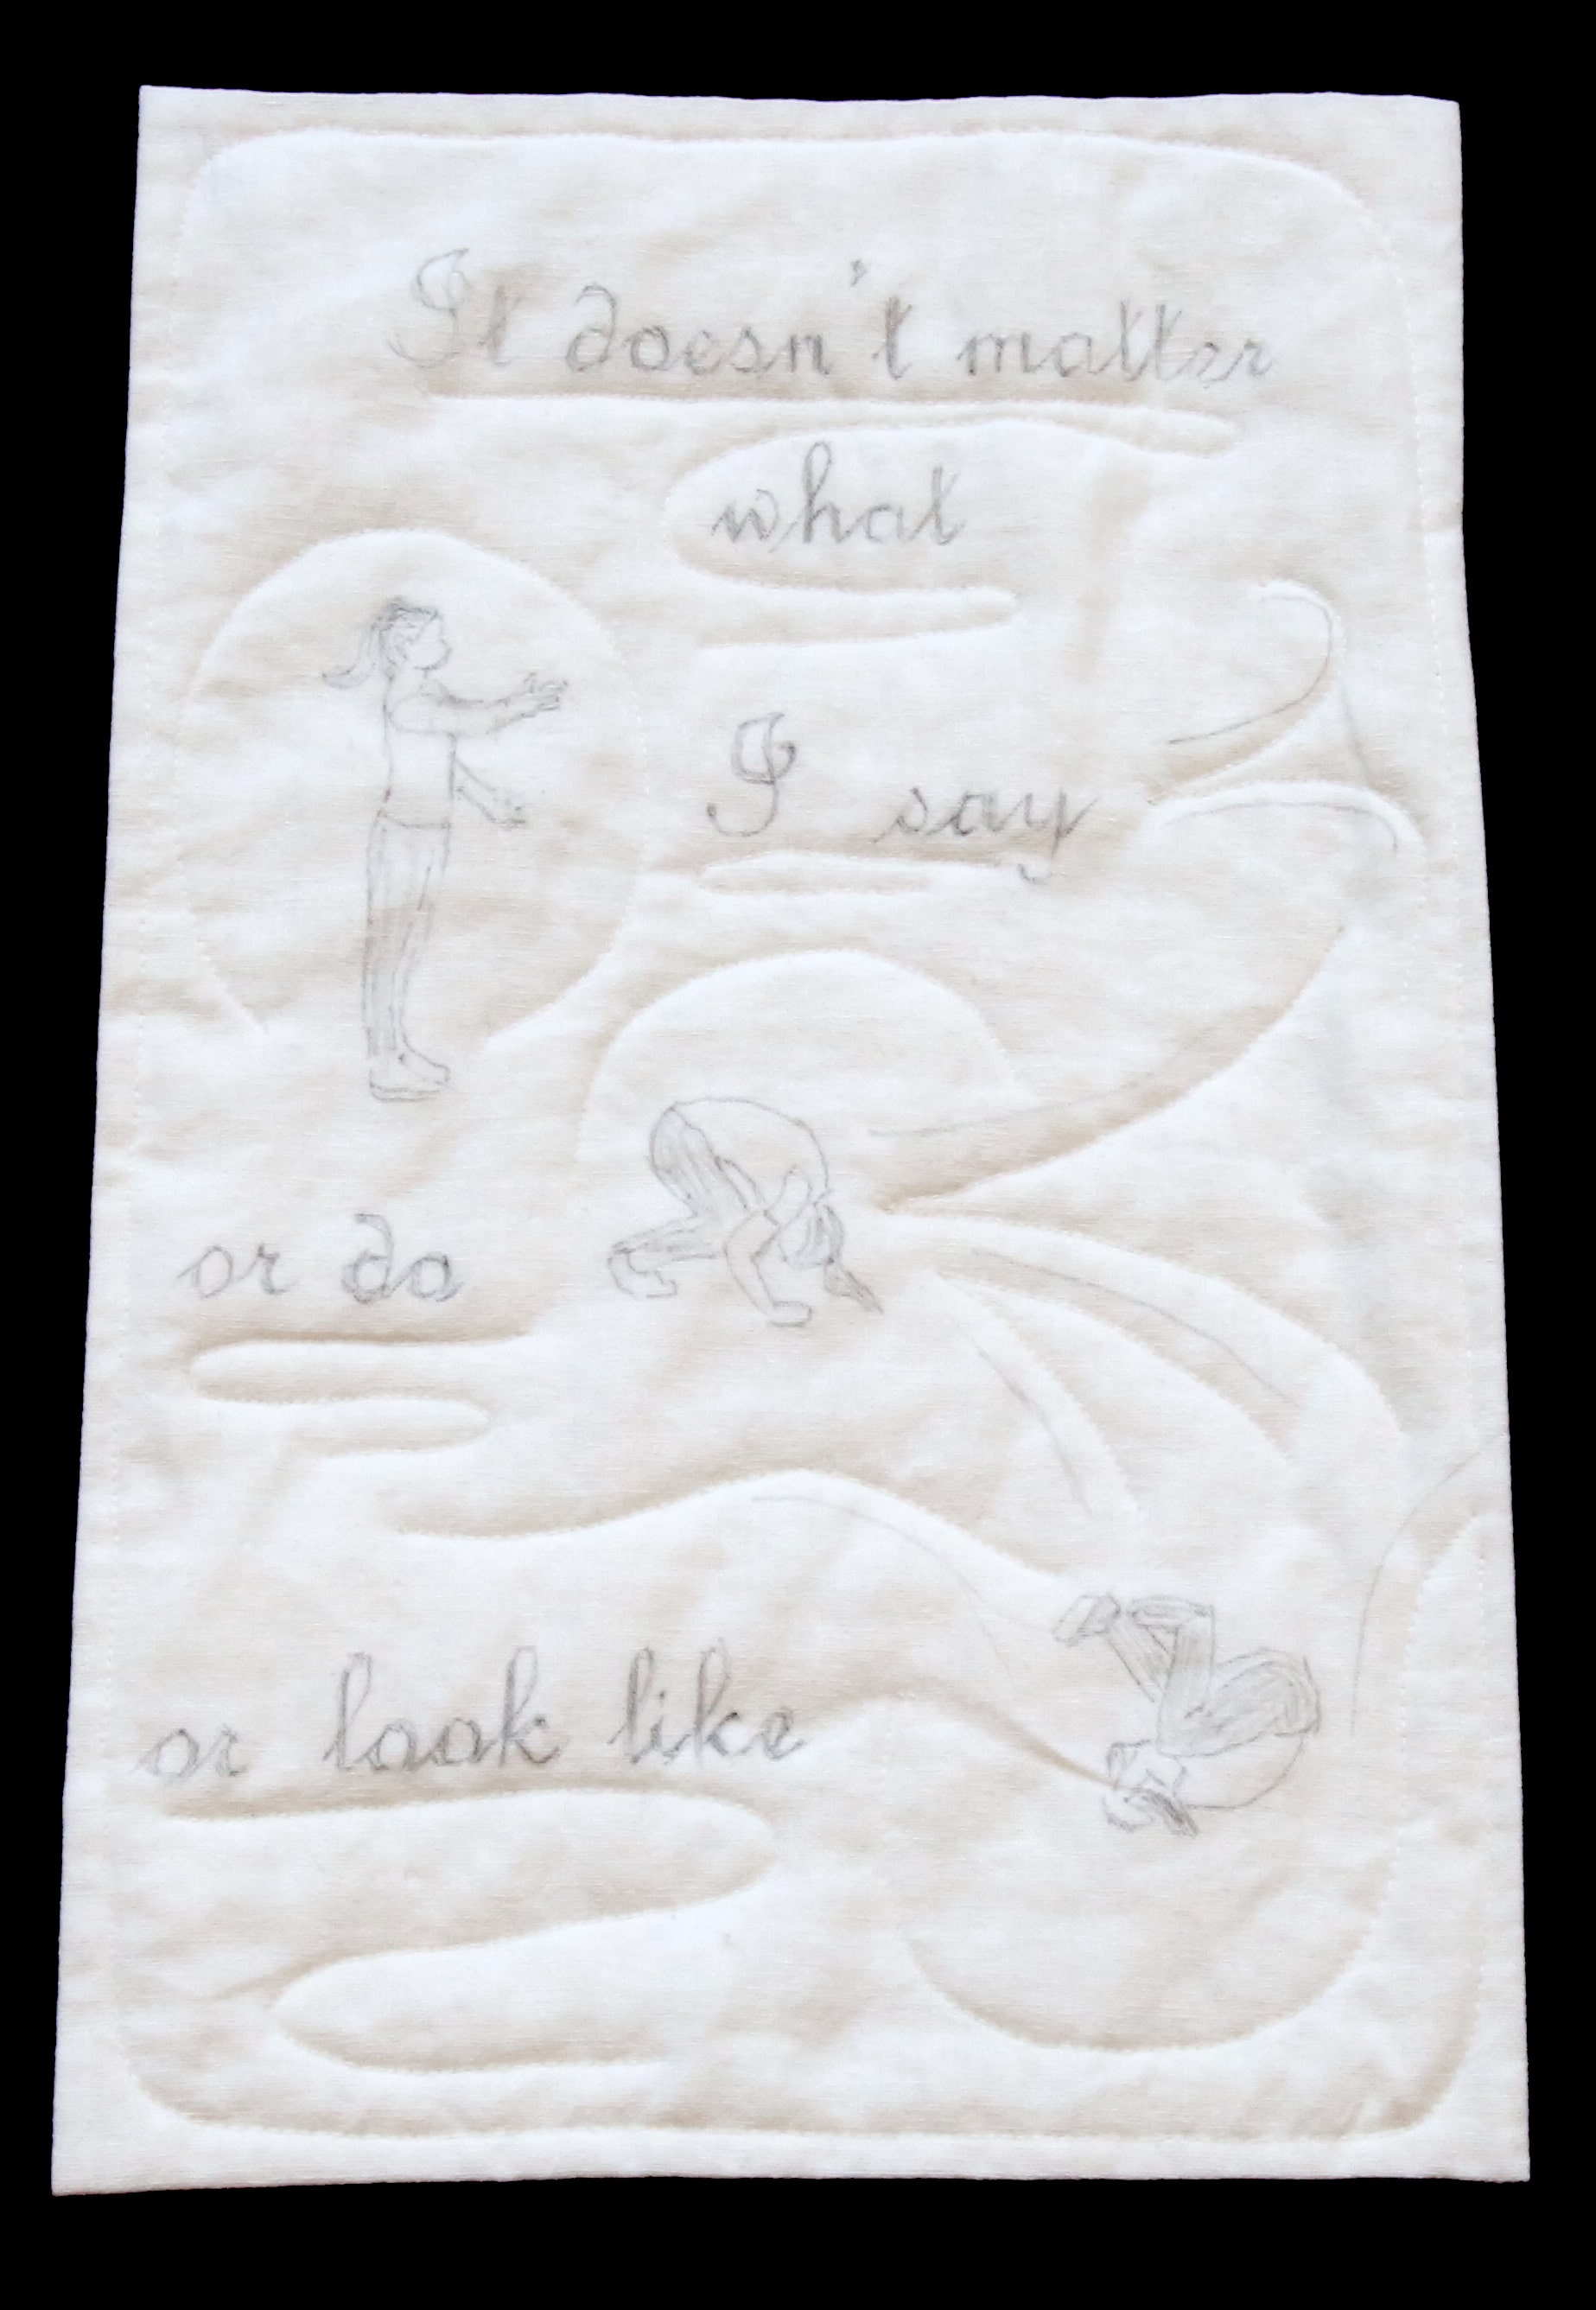 It doesn't matter
what
I say
or do
or look like